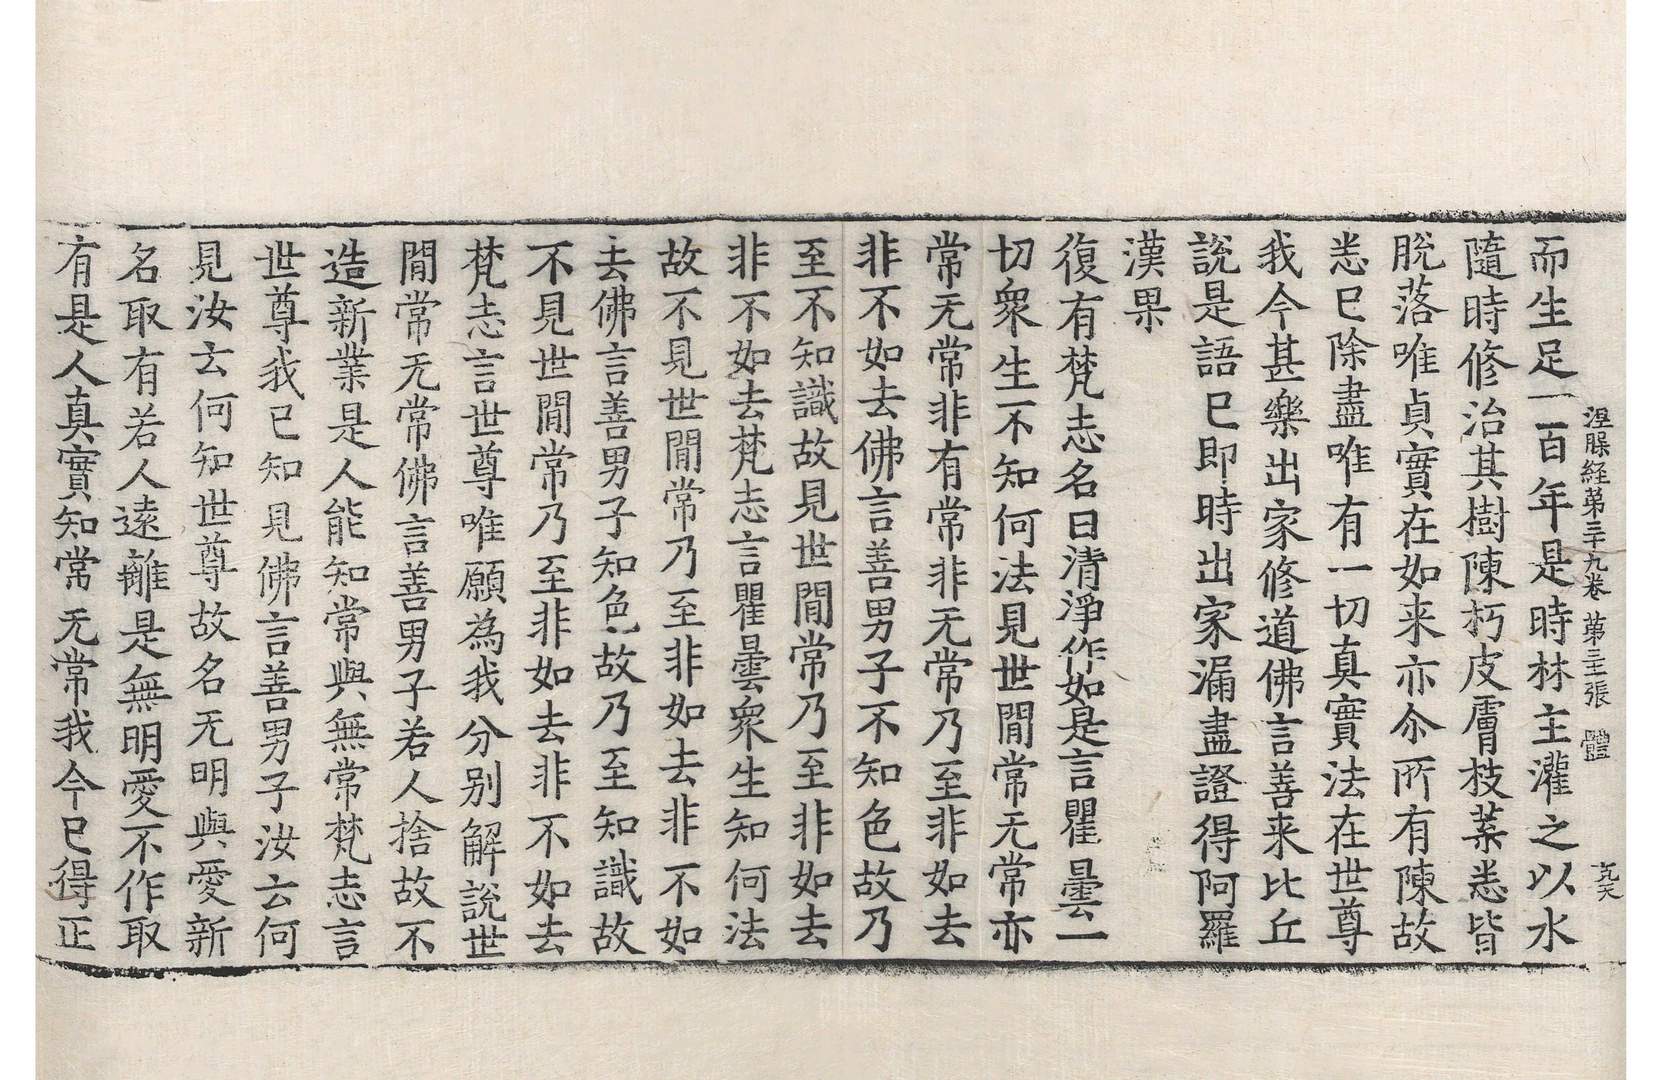 涅槃経第三十九卷 第 張 體
而生足一百年是時林主灌之以水
隨時修治其樹陳朽皮膚枝葉悉皆
脫落唯貞實在如来亦尒所有陳故
悉已除盡唯有一切真實法在世尊
我今甚樂出家修道佛言善来比丘
說是語已即時出家漏盡證得阿羅
漢果
復有梵志名曰清淨作如是言瞿曇一
切衆生不知何法見世閒常无常亦
常无常非有常非无常乃至非如去
非不如去佛言善男子不知色故乃
至不知識故見世閒常乃至非如去
非不如去梵志言瞿曇衆生知何法
故不見世閒常乃至非如去非不如
去佛言善男子知色故乃至知識故
不見世閒常乃至非如去非不如去
梵志言世尊唯願為我分别解說世
閒常无常佛言善男子若人捨故不
造新業是人能知常與無常梵志言
世尊我已知見佛言善男子汝云何
見汝云何知世尊故名无明與愛新
名取有若人遠離是無明愛不作取
有是人真實知常无常我今已得正